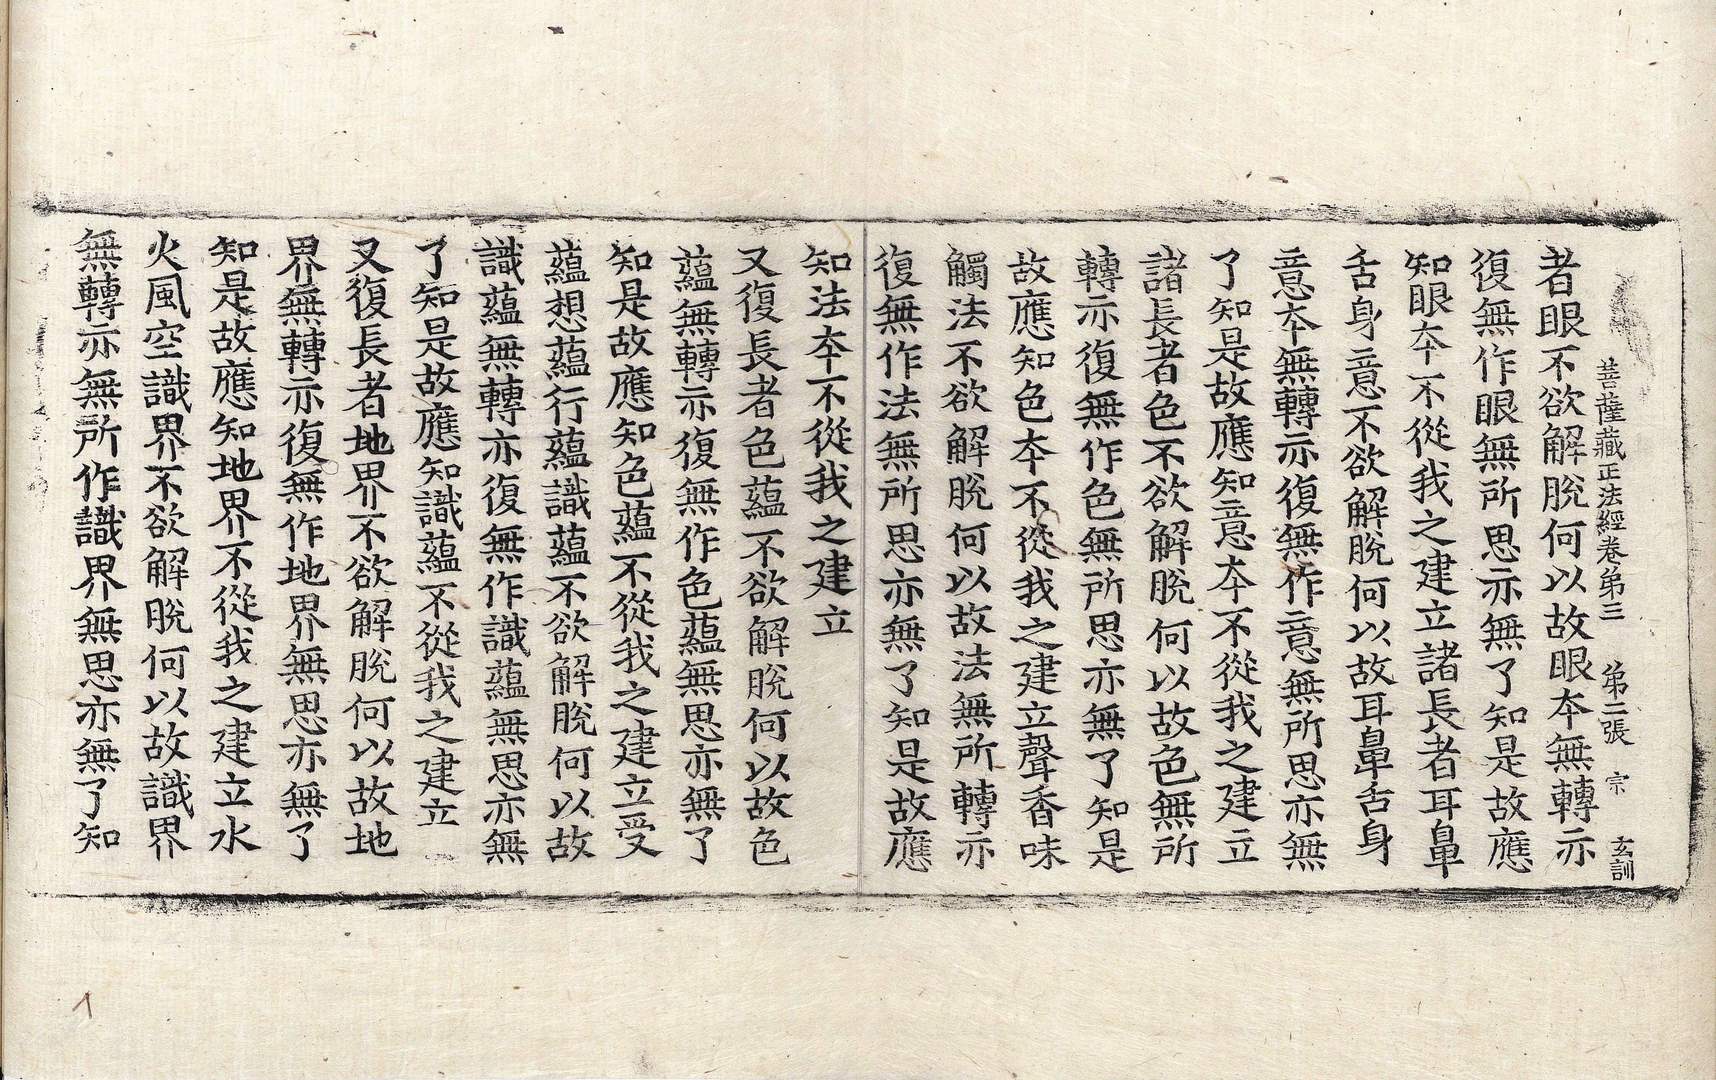 菩薩藏正法經卷第三　第二張　宗　玄訓
者眼不欲解脫何以故眼夲無轉亦
復無作眼無所思亦無了知是故應
知眼夲不從我之建立諸長者耳鼻
舌身意不欲解脫何以故耳鼻舌身
意夲無轉亦復無作意無所思亦無
了知是故應知意夲不從我之建立
諸長者色不欲解脫何以故色無所
轉亦復無作色無所思亦無了知是
故應知色夲不從我之建立聲香味
觸法不欲解脫何以故法無所轉亦
復無作法無所思亦無了知是故應
知法夲不從我之建立
又復長者色蘊不欲解脫何以故色
蘊無轉亦復無作色蘊無思亦無了
知是故應知色蘊不從我之建立受
蘊想蘊行蘊識蘊不欲解脫何以故
識蘊無轉亦復無作識蘊無思亦無
了知是故應知識蘊不從我之建立
又復長者地界不欲解脫何以故地
界無轉亦復無作地界無思亦無了
知是故應知地界不從我之建立水
火風空識界不欲解脫何以故識界
無轉亦無所作識界無思亦無了知
1